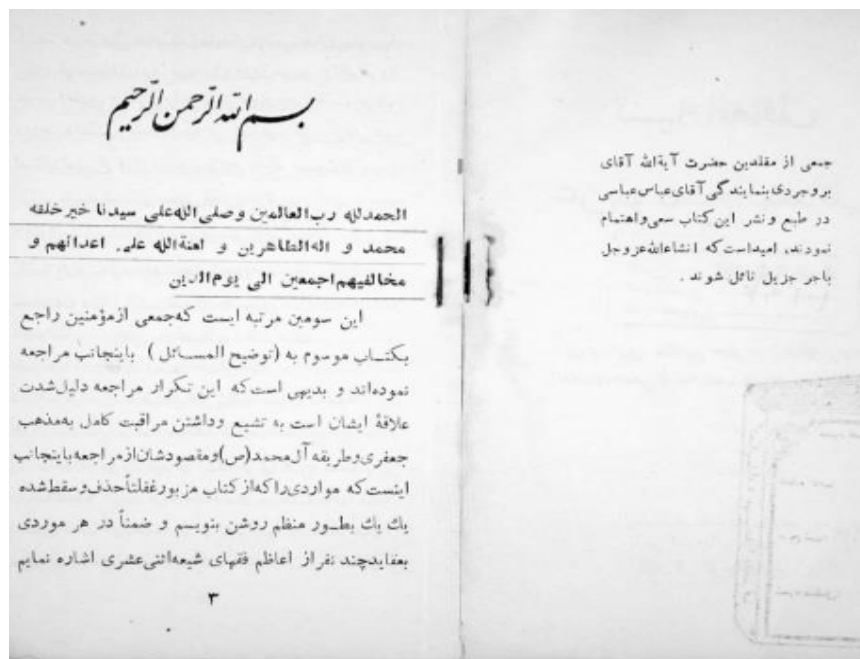 جمعی از مقلدین حضرت آیةالله آقای
بروجردی بنمایندگی آقای عباس عباسی
در طبع و نشر این کتاب سعی واهتمام
نمودند، امیداست که انشاءالله عزوجل
باجر جزیل نائل شوند .
بسم الله الرحمن الرحیم
الحمدلله رب العالمین وصلی الله علی سیدنا خیر خلقه
محمد و اله الطاهرین و لعنةالله علی اعدائهم و
مخالفیهم اجمعین الی یوم الدین
این سومین مرتبه ایست که جمعی ازمؤمنین راجع
بکتاب موسوم به (توضیح المسائل) باینجانب مراجعه
نموده‌اند و بدیهی است که این تکرار مراجعه دلیل شدت
علاقهٔ ایشان است به تشیع وداشتن مراقبت کامل به مذهب
جعفری وطریقه آل محمد(ص) ومقصودشان از مراجعه باینجانب
اینست که مواردی را که از کتاب مزبور غفلتاً حذف و سقط شده
یك یك بطور منظم روشن بنویسم و ضمناً در هر موردی
بعقاید چند نفر از اعاظم فقهای شیعه اثنی عشری اشاره نمایم
۳